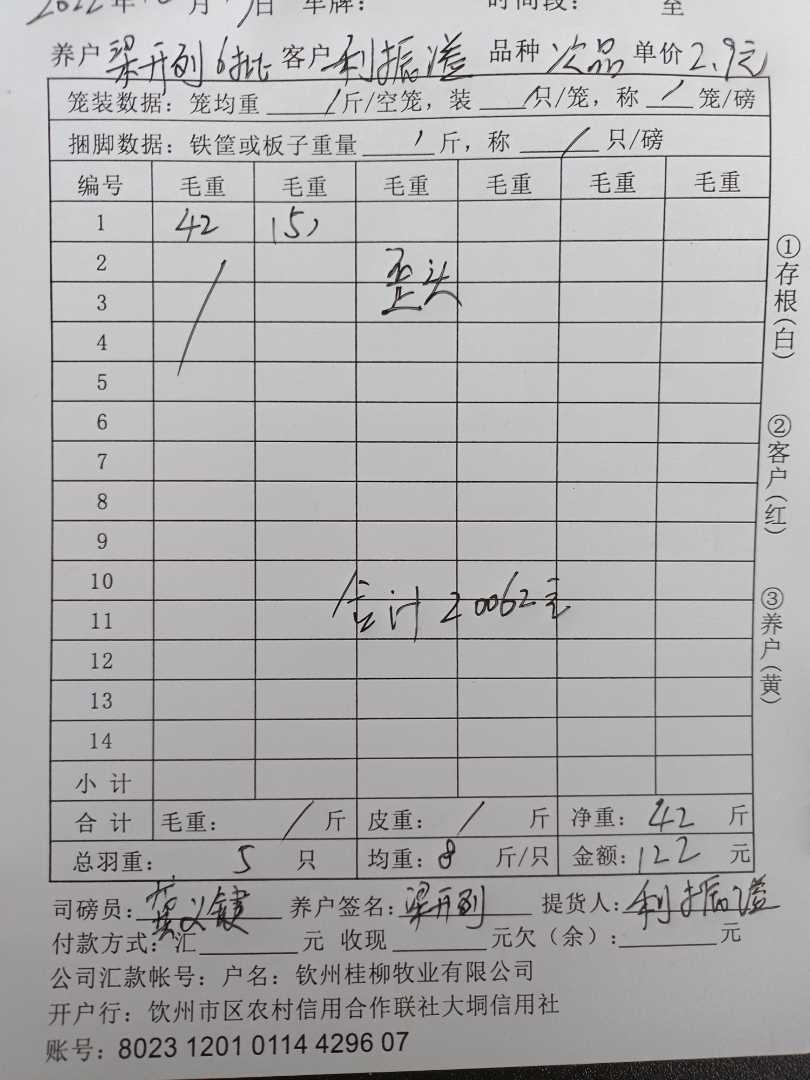 2022年10月17日 车牌: 时间段: 至
养户 梁开列6批 客户 利振溢 品种 次品 单价 2.9元
笼装数据: 笼均重 / 斤/空笼, 装 / 只/笼, 称 / 笼/磅
捆脚数据: 铁筐或板子重量 / 斤, 称 / 只/磅
编号 毛重 毛重 毛重 毛重 毛重 毛重
1 42 (5)
2 歪头
3
4
5
6
7
8
9
10
11 合计 20062
12
13
14
小计
合计 毛重: / 斤 皮重: / 斤 净重: 42 斤
总羽重: 5 只 均重: 8 斤/只 金额: 122 元
司磅员: 养户签名: 梁开列 提货人: 利振溢
付款方式: 汇 元 收现 元欠(余): 元
公司汇款帐号: 户名: 钦州桂柳牧业有限公司
开户行: 饮州市区农村信用合作联社大垌信用社
账号: 8023 1201 0114 4296 07
①存根(白)
②客户(红)
③养户(黄)